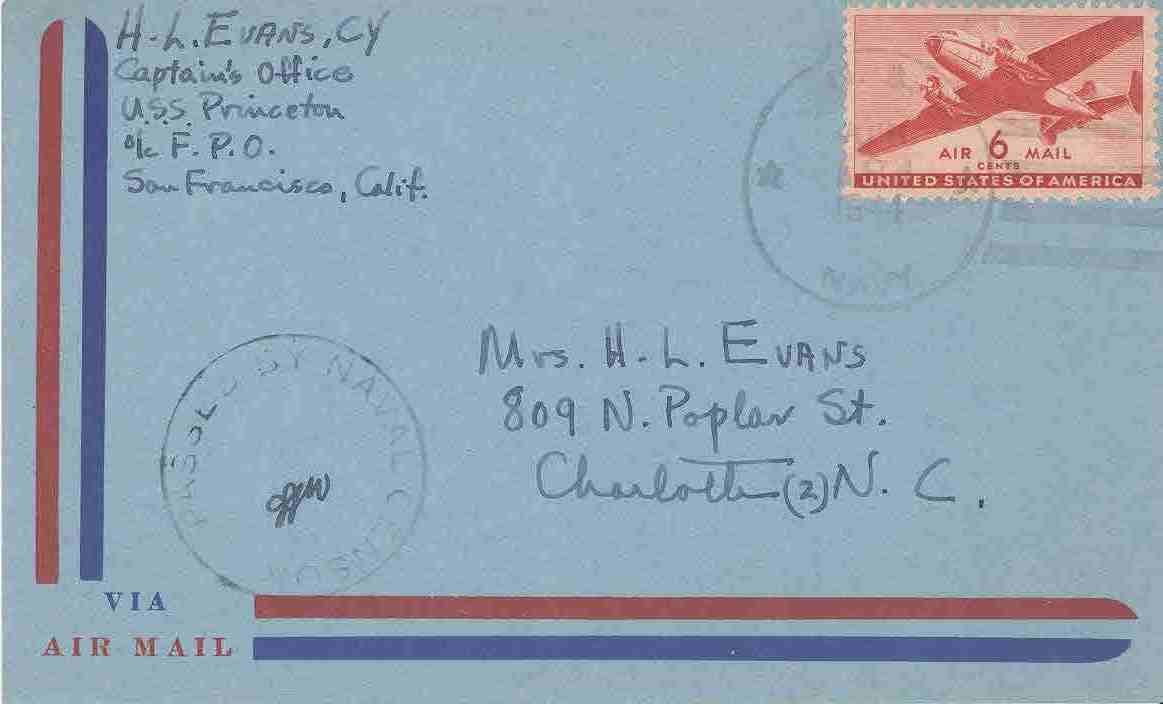 H-L. EVANS, CY
Captain's Office
U.S.S. Princeton
c/o F.P.O.
San Francisco, Calif.
AIR 6 MAIL
CENTS
UNITED STATES OF AMERICA
NAVY
PASSED BY NAVAL CENSOR
Mrs. H-L. EVANS
809 N. Poplar St.
Charlotte (2) N. C.
VIA
AIR MAIL